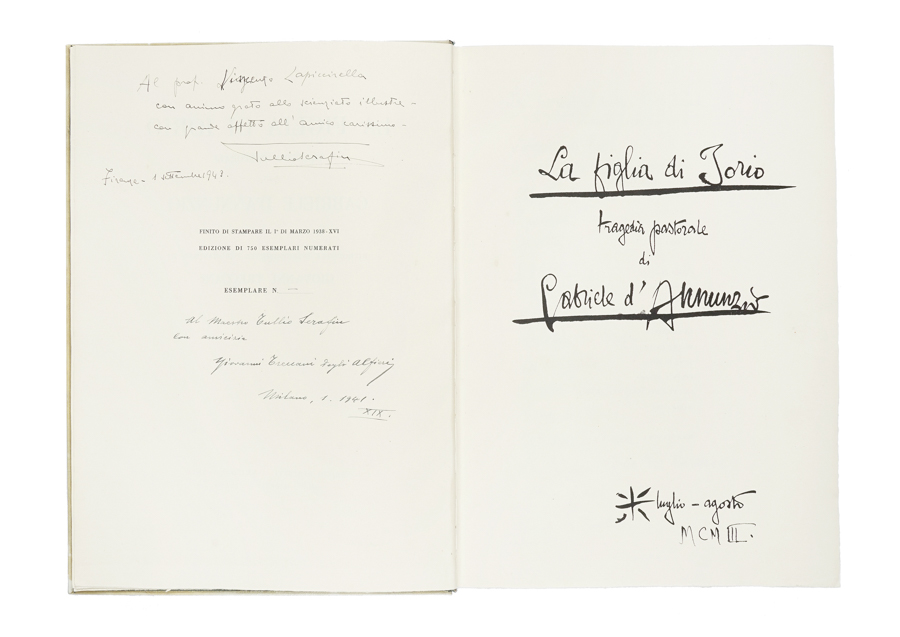 Al prof. Vincenzo Lapiccirella
con animo grato allo scienziato illustre -
con grande affetto all'amico carissimo -
Tullio Serafin
Firenze 1 settembre 1943.
FINITO DI STAMPARE IL 1° DI MARZO 1938-XVI
EDIZIONE DI 750 ESEMPLARI NUMERATI
ESEMPLARE N
Al Maestro Tullio Serafin
con amicizia
Giovanni Treccani degli Alfieri
Milano, 1. 1941.
XIX.
La figlia di Jorio
tragedia pastorale
di
Gabriele d'Annunzio
luglio - agosto
MCMIII.